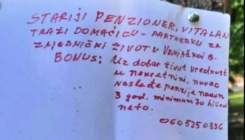 STARIJI PENZIONER, VITALAN
TRAŽI DOMAĆICU - PARTNERKU ZA
ZAJEDNIČKI ŽIVOT U B.
BONUS: Uz dobar život vrednost
u nekretnini, novac
nasleđe penzije nakon
3 god. minimum 30 hiljad
neto.
0605250336